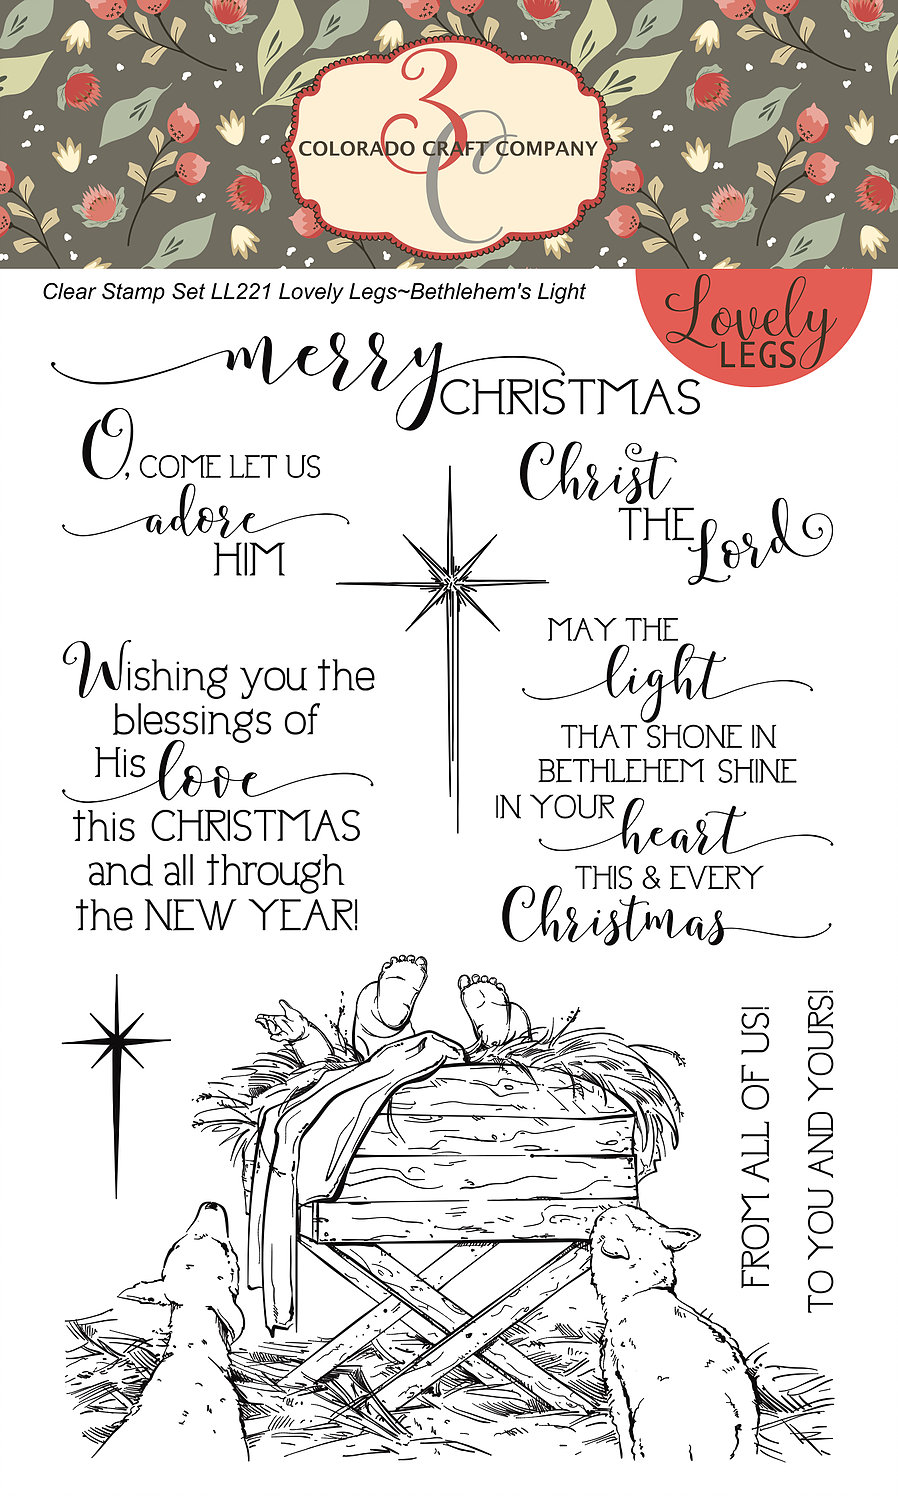 3C
COLORADO CRAFT COMPANY
Clear Stamp Set LL221 Lovely Legs~Bethlehem's Light
Lovely
LEGS
merry
CHRISTMAS
O, COME LET US
adore
HIM
Christ
THE
Lord
Wishing you the
blessings of
His love
this CHRISTMAS
and all through
the NEW YEAR!
MAY THE
light
THAT SHONE IN
BETHLEHEM SHINE
IN YOUR heart
THIS & EVERY
Christmas
FROM ALL OF US!
TO YOU AND YOURS!